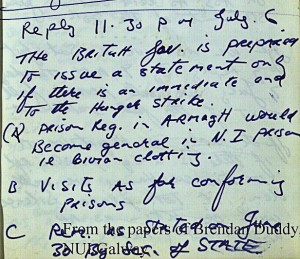 Reply 11.30 pm July 6
The British Gov. is preparing
to issue a statement only
if there is an immediate end
to the Hunger Strike.
(A) Prison Reg. in ARMAGH would
Become general in N.I Prison
ie Civian clotting.
B Visits as for conforming
prisons
C Rem. as stated June
From the papers of Brendan Duddy
30 By Sec. of STATE
NUI Galway